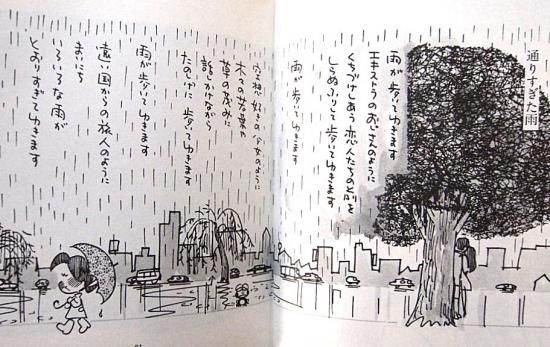 通りすぎた雨
雨が歩いてゆきます
エキストラのおじさんのように
くちづけしあう恋人たちの前を
しらぬふりして歩いてゆきます
雨が歩いてゆきます
空想好きの少女のように
木々の若葉や
草の茂みに
話しかけながら
たのしげに歩いてゆきます
雨が歩いてゆきます
遠い国からの旅人のように
まいにち
いろいろな雨が
とおりすぎてゆきます